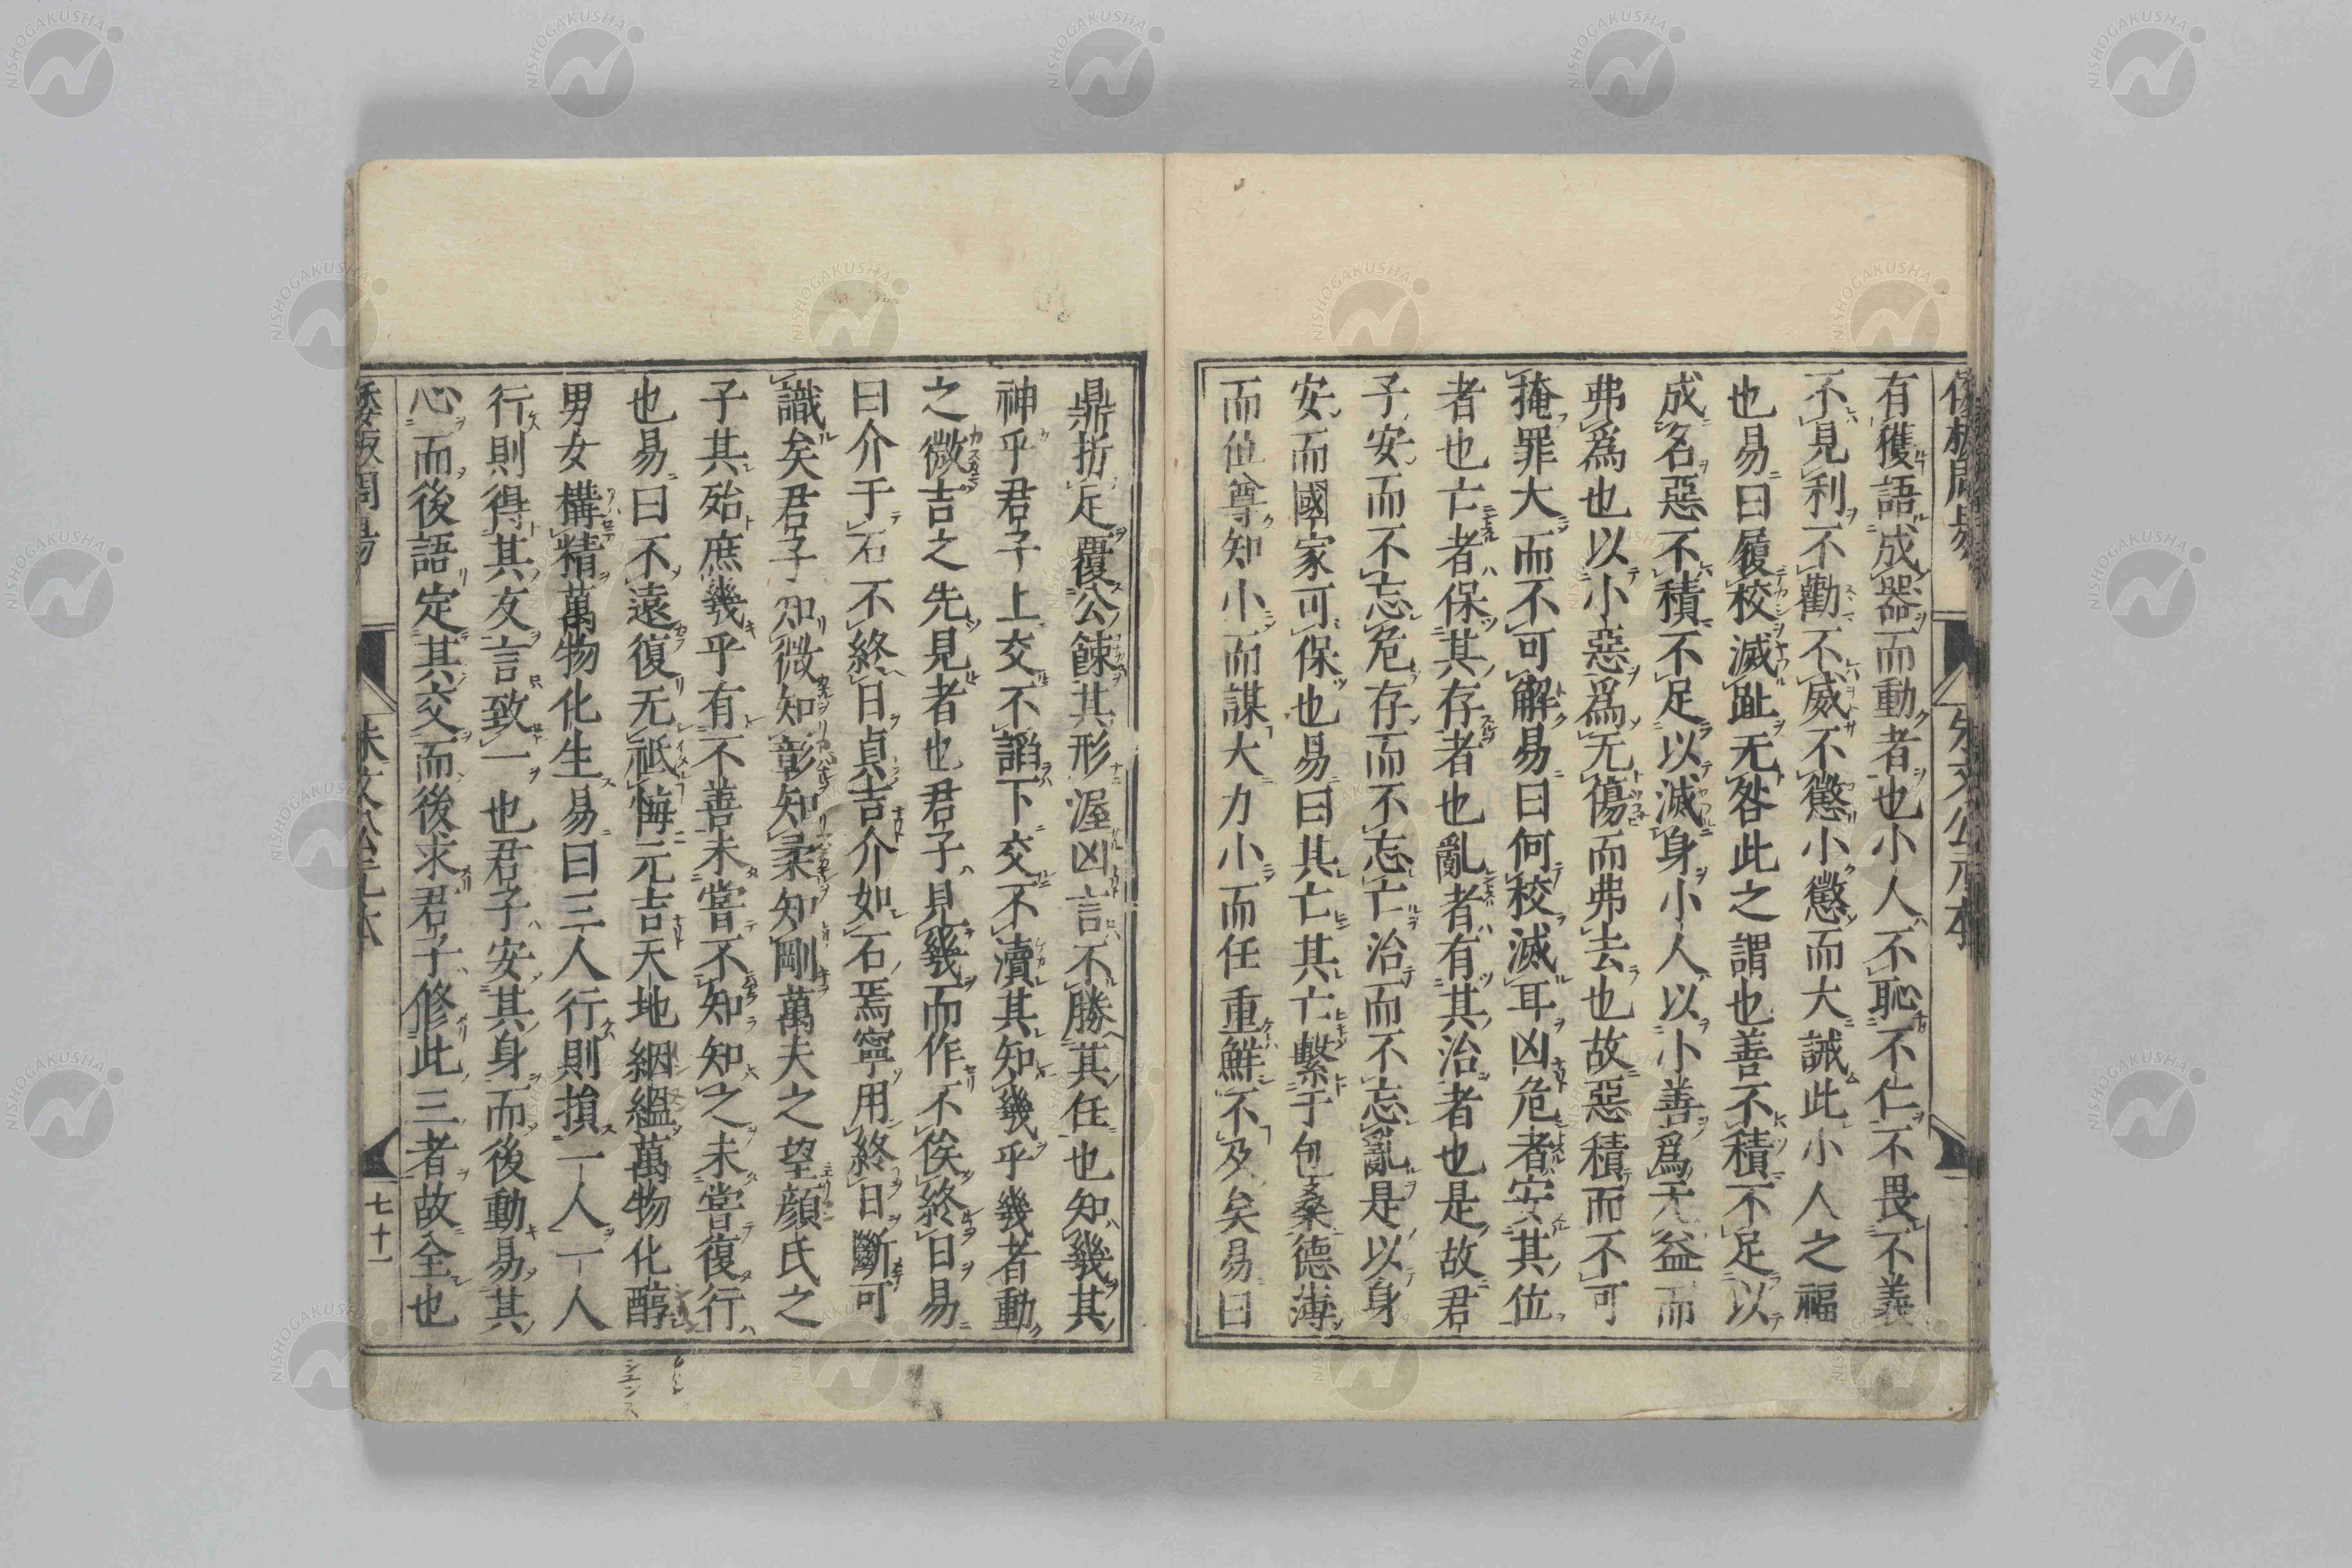 有獲語成器而動者也小人不恥不仁不畏不義
不見利不勸不威不懲小懲而大誡此小人之福
也易曰履校滅趾无咎此之謂也善不積不足以
成名惡不積不足以滅身小人以小善爲无益而
弗爲也以小惡爲无傷而弗去也故惡積而不可
掩罪大而不可解易曰何校滅耳凶危者安其位
者也亡者保其存者也亂者有其治者也是故君
子安而不忘危存而不忘亡治而不忘亂是以身
安而國家可保也易曰其亡其亡繫于包桑德薄
而位尊知小而謀大力小而任重鮮不及矣易曰
鼎折足覆公餗其形渥凶言不勝其任也知幾其
神乎君子上交不諂下交不瀆其知幾乎幾者動
之微吉之先見者也君子見幾而作不俟終日易
曰介于石不終日貞吉介如石焉寧用終日斷可
識矣君子知微知彰知柔知剛萬夫之望顔氏之
子其殆庶幾乎有不善未嘗不知知之未嘗復行
也易曰不遠復无祗悔元吉天地絪縕萬物化醇
男女構精萬物化生易曰三人行則損一人一人
行則得其友言致一也君子安其身而後動易其
心而後語定其交而後求君子修此三者故全也
七十一
NISHOGAKUSHA